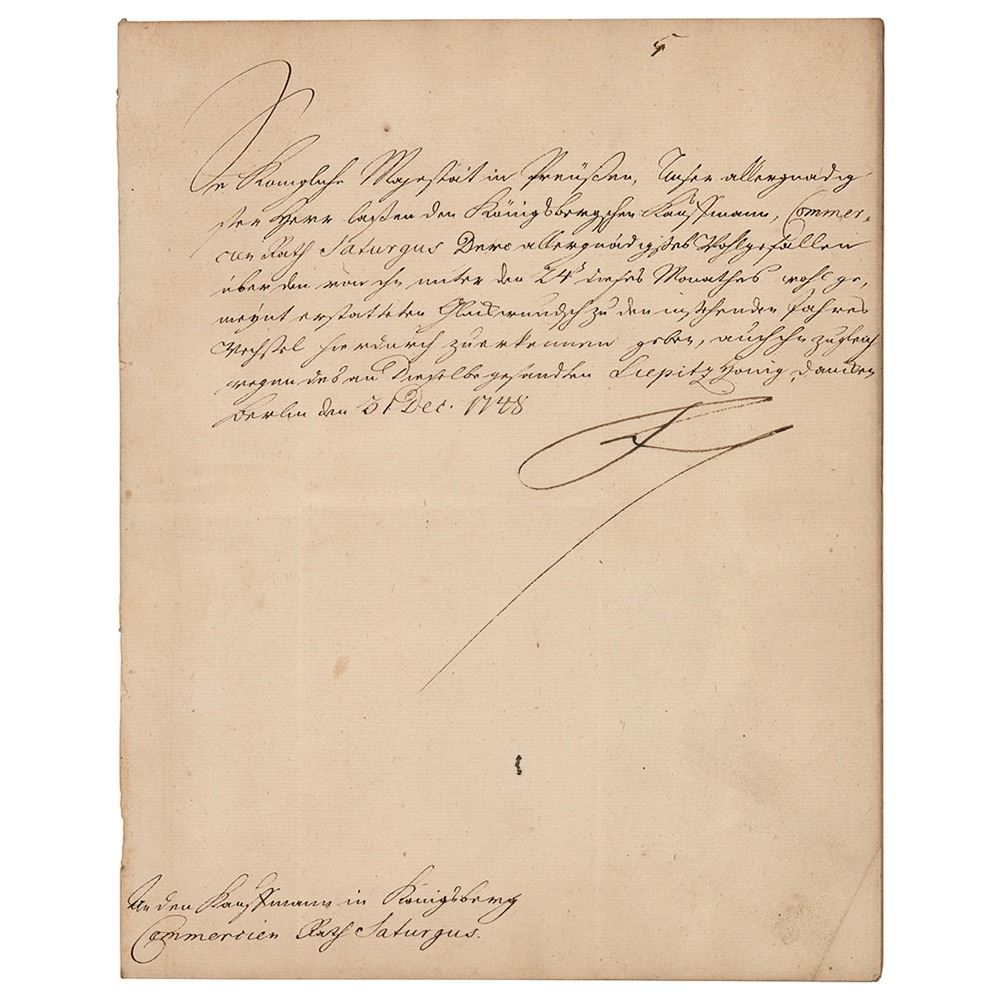 5
Se Königliche Majestät in Preüßen, Unser allergnädig-
ster Herr laßen dem Königsbergschen Kauffmann, Commer-
cien Rath Saturgus Dero allergnädigstes Wohlgefallen
über den von ihm unter den 24ⁿ dieses Monathes wohl ge-
meynt erstatteten Glückwunsch zu dem instehenden Jahres
Wechsel hierdurch zu erkennen geben, auch ihm zugleich
wegen des an Dieselbe gesandten Liepitz Honig, danken
Berlin den 31 Dec. 1748
An den Kauffmann in Königsberg
Commercien Rath Saturgus.